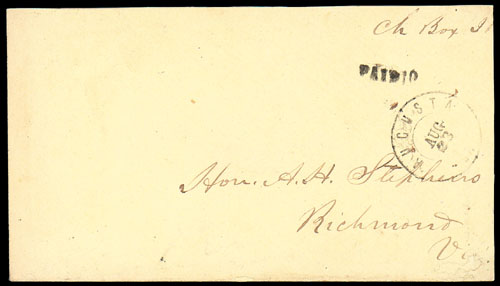 Ch Box
PAID10
AUGUSTA
AUG
23
Hon. A. H. Stephens
Richmond
Va